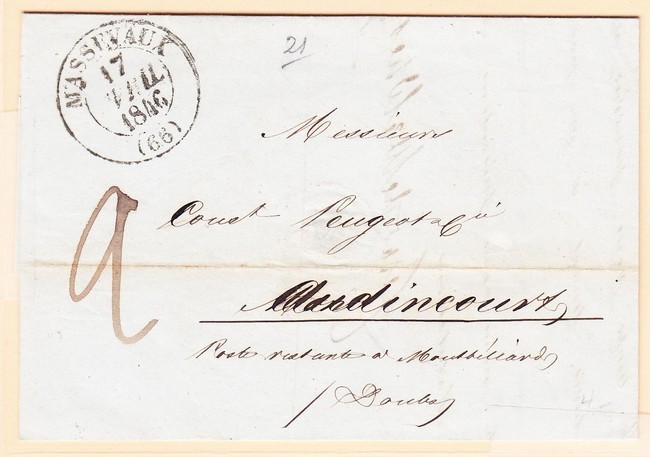 MASSEVAUX
17
AVRIL
1846
(66)
21
Messieurs
Const Peugeot & Cie
2
Audincourt
Poste restante à Montbéliard
/ Doubs
4